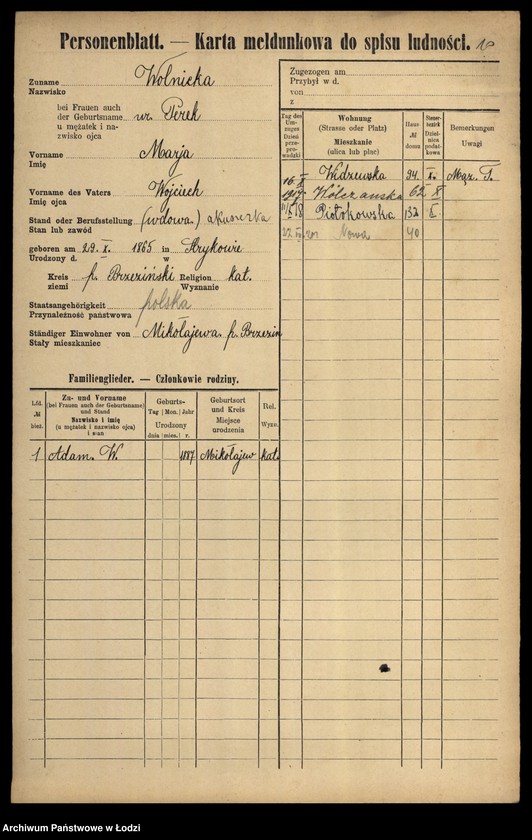 Personenblatt. — Karta meldunkowa do spisu ludności.
Zuname
Nazwisko
Wolnicka
bei Frauen auch
der Geburtsname
u mężatek i na-
zwisko ojca
ur. Perek
Vorname
Imię
Marja
Vorname des Vaters
Imię ojca
Wojciech
Stand oder Berufsstellung
Stan lub zawód
(wdowa.) akuszerka
geboren am 29. X. 1865 in Strykowie
Urodzony d. w
Kreis
ziemi
p. Brzeziński
Religion
Wyznanie
kat.
Staatsangehörigkeit
Przynależność państwowa
polska
Ständiger Einwohner von
Stały mieszkaniec
Mikołajewa p. Brzezin
Familienglieder. — Członkowie rodziny.
Lfd.
№
bież.
Zu- und Vorname
(bei Frauen auch der Geburtsname)
und Stand
Nazwisko i imię
(u mężatek i nazwisko ojca)
i stan
Geburts-
Tag Mon. Jahr
Urodzony
dnia mies. r.
Geburtsort
und Kreis
Miejsce
urodzenia
Rel.
Wyzn.
1 Adam. W. 1887 Mikołajew kat.
Zugezogen am
Przybył w d.
von
z
Tag des
Um-
zuges
Dzień
prze-
prowadzki
Wohnung
(Strasse oder Platz)
Mieszkanie
(ulica lub plac)
Haus
№
domu
Steuer-
bezirk
Dziel-
nica
podat-
kowa
Bemerkungen
Uwagi
16. X 1917 Widzewska 94. X.
Wólczańska 62 X
18 Piotrkowska 132
Nowa 40
Archiwum Państwowe w Łodzi